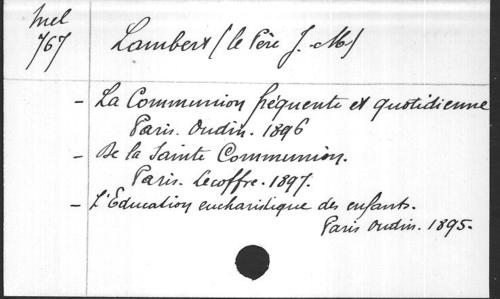 Mel
767
Lambert (le Père J.-M)
- La Communion fréquente et quotidienne
Paris. Oudin. 1896
- De la Sainte Communion.
Paris. Lecoffre. 1897.
- L'Education eucharistique des enfants.
Paris Oudin. 1895.